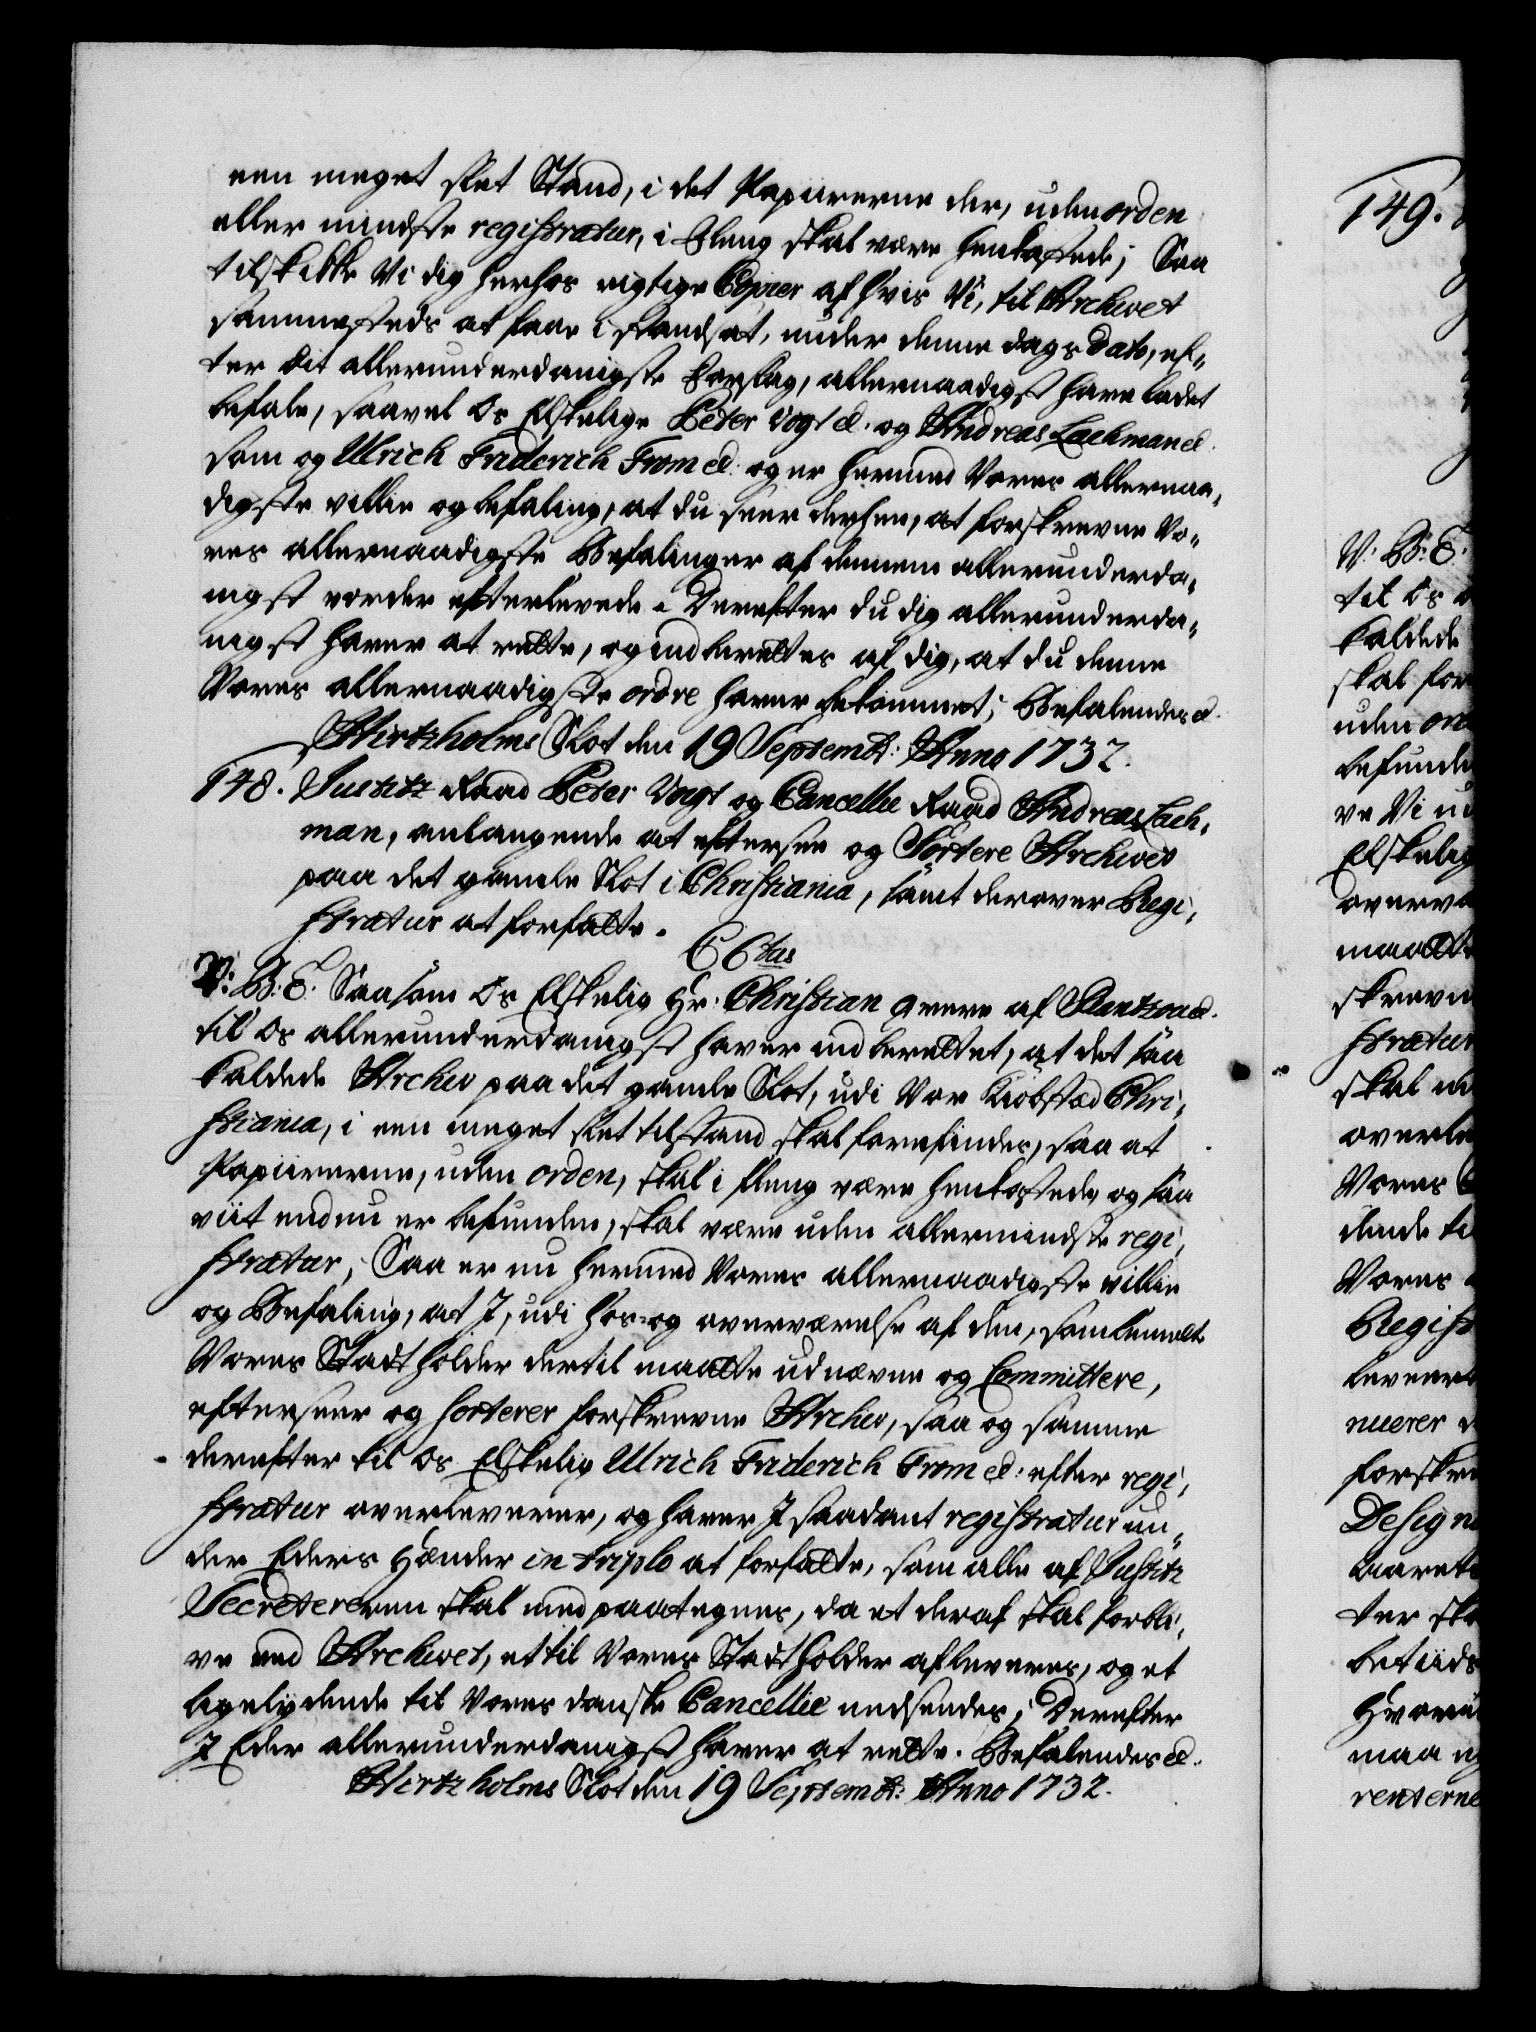 een meget slet Stand, i det Papiirerne der, uden orden
eller mindste registratur, i fleng skal være henkastede; Saa
tilskikke Vi dig herhos rigtige Copier af hvis Vi, til Archivet
sammesteds at faae i stand sat, under denne dags dato, ef-
ter dit allerunderdanigste forslag, allernaadigst have ladet
befale, saavel Os Elskelige Peter Vogt &. og Andreas Lachman &.
som og Ulrich Friderich From &. og er hermed Vores allernaa-
digste villie og befaling, at du seer derhen, at forskrevne Vo-
res allernaadigste Befalinger af dennem allerunderda-
nigst vorder efterlevede. Derefter du dig allerunderda-
nigst haver at rette, og indberettes af dig, at du denne
Vores allernaadigste ordre haver bekommet; Befalendes &.
Hirtzholms Slot den 19 Septembr: Anno 1732.
148. Justitz Raad Peter Vogt og Cancellie Raad Andreas Lach-
man, anlangende at eftersee og Sortere Archivet
paa det gamle Slot i Christiania, samt derover Regi-
stratur at forfatte.
C 6tus
V: B: E. Saasom Os Elskelig Hr: Christian greve af Rantzou &.
til Os allerunderdanigst haver indberettet, at det saa
kaldede Archiv paa det gamle Slot, udi Vor Kiøbstæd Chri-
stiania, i een meget slet tilstand skal forefindes, saa at
Papiirerne, uden orden, skal i fleng være henkastede og saa
viit endnu er befunden, skal være uden allermindste regi-
stratur; Saa er nu hermed Vores allernaadigste villie
og Befaling, at I, udi hos- og overværelse af den, som bemelte
Vores Stadtholder dertil maatte udnævne og Committere,
efterseer og sorterer forskrevne Archiv, saa og samme
derefter til Os Elskelig Ulrich Friderich From &. efter regi-
stratur overleverer, og haver I saadant registratur un-
der Eders Hænder in triplo at forfatte, som alle af Justitz
Secretereren skal med paategnes, da et deraf skal forbli-
ve ved Archivet, et til Vores Stadtholder afleveres, og et
ligelydende til Vores danske Cancellie nedsendes; Derefter
I Eder allerunderdanigst haver at rette. Befalendes &.
Hirtzholms Slot den 19 Septembr: Anno 1732.
149.
V: B: E.
til Os
kaldede
skal for
uden ord
befunde
ve Vi
Elskelig
overvæ
maatte
skrevn
stratur
skal
overle
Vores
dende til
Vores
Regist
leveert
nuerer
forskre
Design
ter sk
betiids
maa
renterne